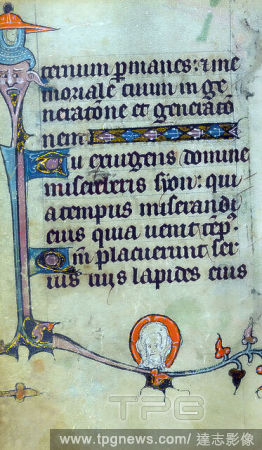 ternum permanes: et me
moriale tuum in ge
neratone et generato
nem
Tu exurgens domine
misereberis syon: qui
a tempus miserendi
eius quia venit temp9.
Qm placuerunt ser
uis tuis lapides eius
TPG
www.tpgnews.com/ 達志影像